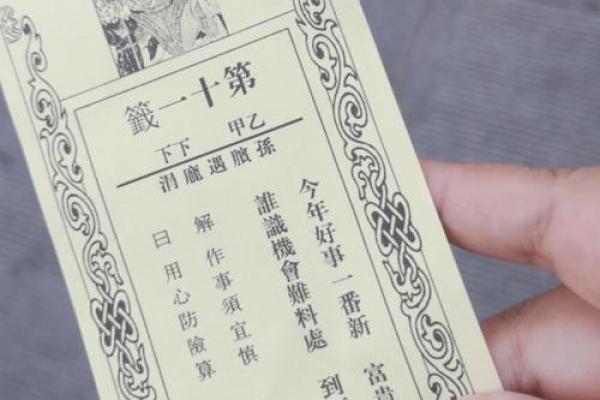 第十一籤
乙甲 下下
孫臏遇龐涓
今年好事一番新 富貴
誰識機會難料處 到
解 作事須宜慎
曰 用心防險算